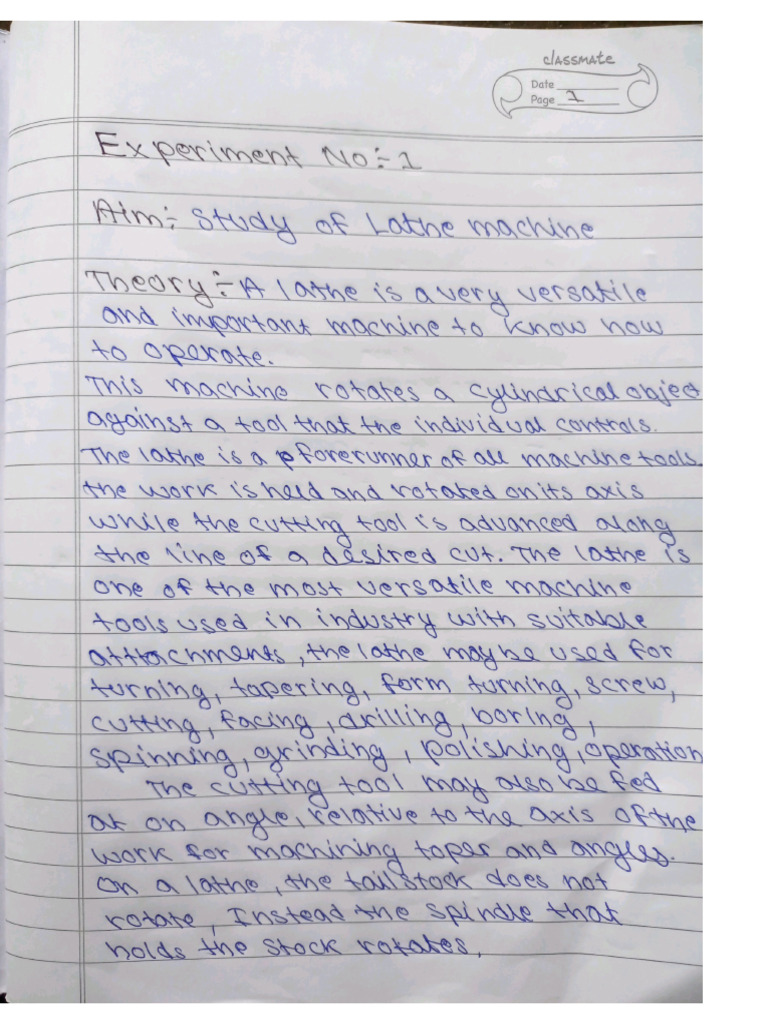 classmate
Date
Page 1
Experiment No÷1
Aim÷ Study of Lathe machine
Theory÷ A lathe is a very versatile
and important machine to know how
to operate.
This machine rotates a cylindrical objec
against a tool that the individual controls.
The lathe is a forerunner of all machine tools.
the work is held and rotated on its axis
while the cutting tool is advanced along
the line of a desired cut. The lathe is
one of the most versatile machine
tools used in industry with suitable
atttachments, the lathe may be used for
turning, tapering, form turning, screw,
cutting, facing, drilling, boring,
spinning, grinding, polishing, operation
The cutting tool may also be fed
at on angle, relative to the axis of the
work for machining taper and angles.
On a lathe, the tailstock does not
rotate, Instead the spindle that
holds the stock rotates,